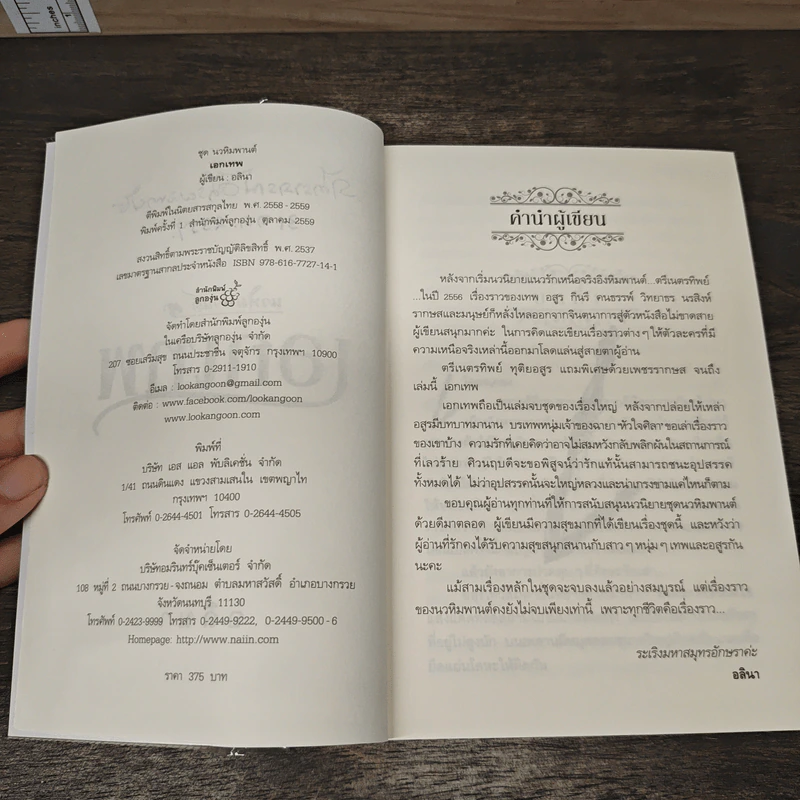 inches
1
ชุด นวหิมพานต์
เอกเทพ
ผู้เขียน : อลินา
ตีพิมพ์ในนิตยสารสกุลไทย พ.ศ. 2558 - 2559
พิมพ์ครั้งที่ 1 สำนักพิมพ์ลูกองุ่น ตุลาคม 2559
สงวนสิทธิ์ตามพระราชบัญญัติลิขสิทธิ์ พ.ศ. 2537
เลขมาตรฐานสากลประจำหนังสือ ISBN 978-616-7727-14-1
สำนักพิมพ์
ลูกองุ่น
จัดทำโดยสำนักพิมพ์ลูกองุ่น
ในเครือบริษัทลูกองุ่น จำกัด
207 ซอยเสริมสุข ถนนประชาชื่น จตุจักร กรุงเทพฯ 10900
โทรสาร 0-2911-1910
อีเมล : lookangoon@gmail.com
ติดต่อ : www.facebook.com/lookangoon
www.lookangoon.com
พิมพ์ที่
บริษัท เอส แอล พับลิเคชั่น จำกัด
1/41 ถนนดินแดง แขวงสามเสนใน เขตพญาไท
กรุงเทพฯ 10400
โทรศัพท์ 0-2644-4501 โทรสาร 0-2644-4505
จัดจำหน่ายโดย
บริษัทอมรินทร์บุ๊คเซ็นเตอร์ จำกัด
108 หมู่ที่ 2 ถนนบางกรวย - จงถนอม ตำบลมหาสวัสดิ์ อำเภอบางกรวย
จังหวัดนนทบุรี 11130
โทรศัพท์ 0-2423-9999 โทรสาร 0-2449-9222, 0-2449-9500 - 6
Homepage: http://www.naiin.com
ราคา 375 บาท
คำนำผู้เขียน
หลังจากเริ่มนวนิยายแนวรักเหนือจริงอิงหิมพานต์...ตรีเนตรทิพย์
...ในปี 2556 เรื่องราวของเทพ อสูร กินรี คนธรรพ์ วิทยาธร นรสิงห์
รากษสและมนุษย์ก็หลั่งไหลออกจากจินตนาการสู่ตัวหนังสือไม่ขาดสาย
ผู้เขียนสนุกมากค่ะ ในการคิดและเขียนเรื่องราวต่าง ๆ ให้ตัวละครที่มี
ความเหนือจริงเหล่านี้ออกมาโลดแล่นสู่สายตาผู้อ่าน
ตรีเนตรทิพย์ ทุติยอสูร แถมพิเศษด้วยเพชรรากษส จนถึง
เล่มนี้ เอกเทพ
เอกเทพถือเป็นเล่มจบชุดของเรื่องใหญ่ หลังจากปล่อยให้เหล่า
อสูรมีบทบาทมานาน บรเทพหนุ่มเจ้าของฉายา 'หัวใจศิลา' ขอเล่าเรื่องราว
ของเขาบ้าง ความรักที่เคยคิดว่าอาจไม่สมหวังกลับพลิกผันในสถานการณ์
ที่เลวร้าย ศิวนฤบดีจะขอพิสูจน์ว่ารักแท้นั้นสามารถชนะอุปสรรค
ทั้งหมดได้ ไม่ว่าอุปสรรคนั้นจะใหญ่หลวงและน่าเกรงขามแค่ไหนก็ตาม
ขอบคุณผู้อ่านทุกท่านที่ให้การสนับสนุนนวนิยายชุดนวหิมพานต์
ด้วยดีมาตลอด ผู้เขียนมีความสุขมากที่ได้เขียนเรื่องชุดนี้ และหวังว่า
ผู้อ่านที่รักคงได้รับความสุขสนุกสนานกับสาว ๆ หนุ่ม ๆ เทพและอสูรกัน
นะคะ
แม้สามเรื่องหลักในชุดจะจบลงแล้วอย่างสมบูรณ์ แต่เรื่องราว
ของนวหิมพานต์คงยังไม่จบเพียงเท่านี้ เพราะทุกชีวิตคือเรื่องราว...
ระเริงมหาสมุทรอักษราค่ะ
อลินา